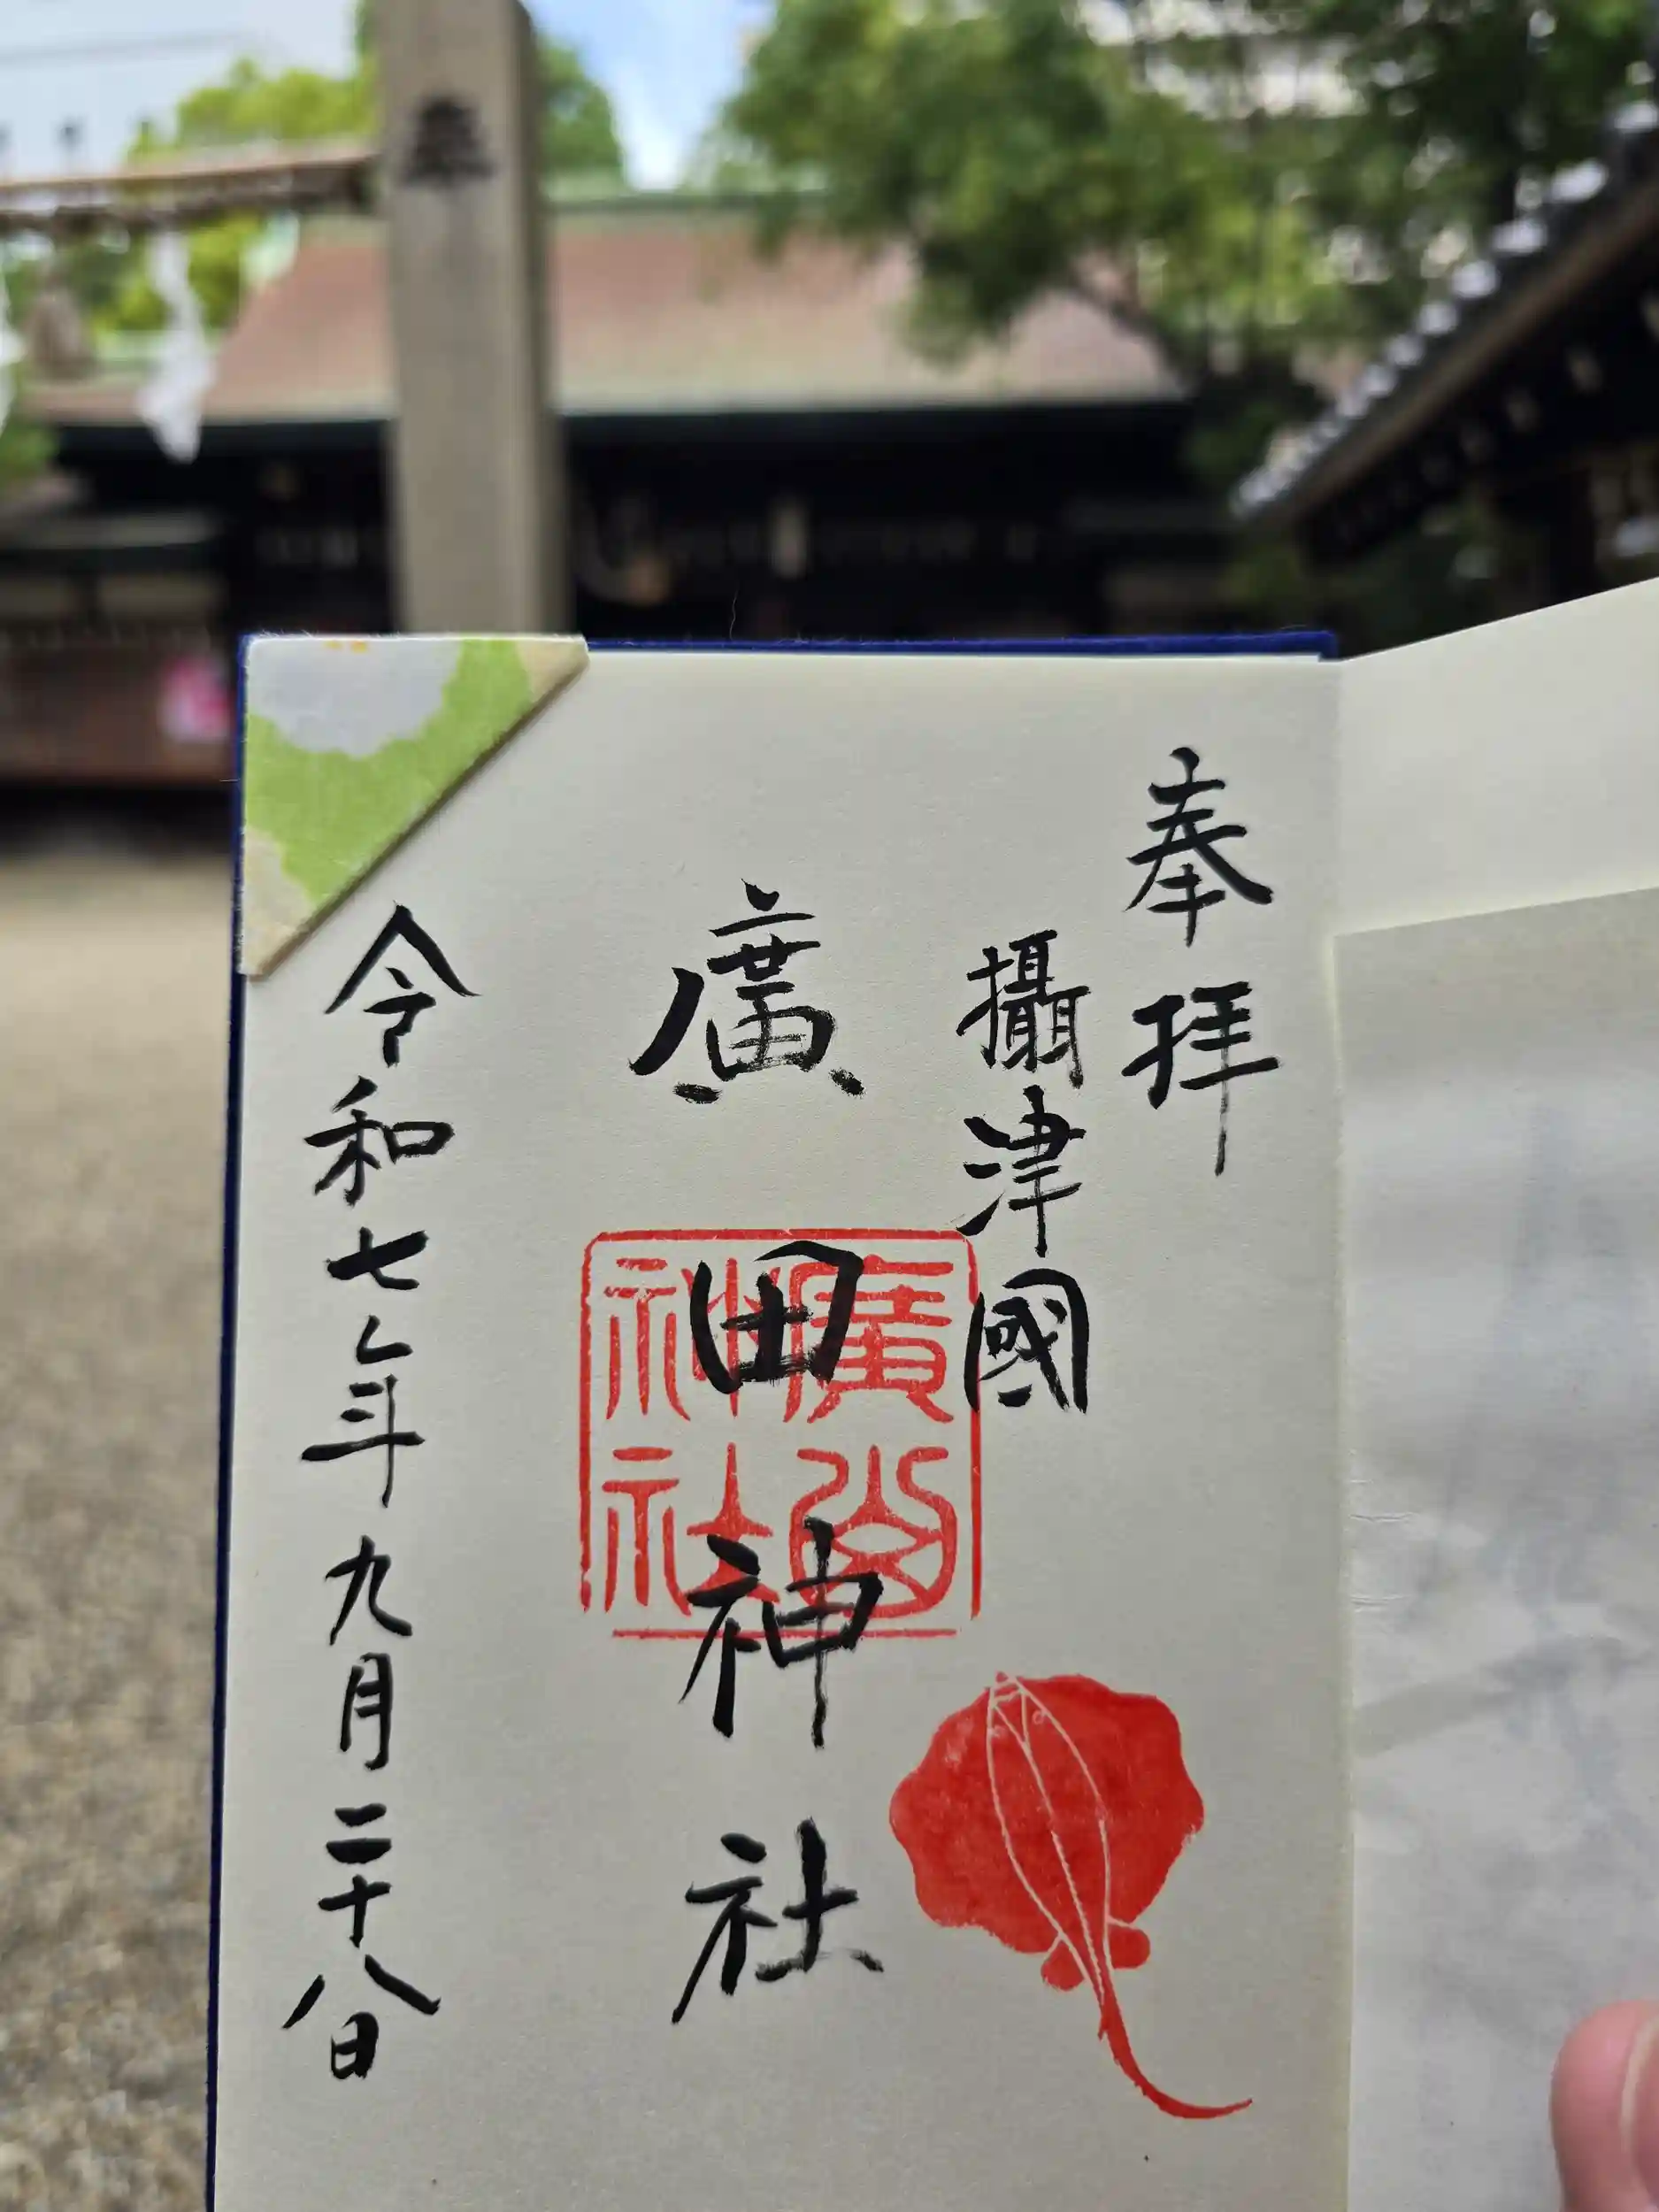 奉拝
攝津國
廣田神社
令和七年九月二十八日
奉